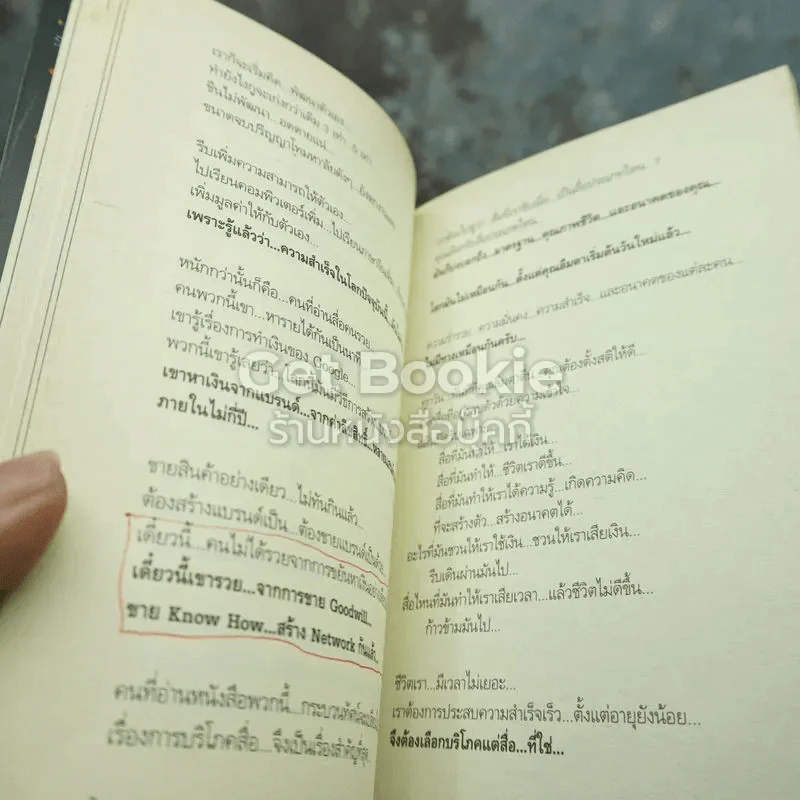 เราก็จะเริ่มคิด...พัฒนาตัวเอง
ทำยังไงถูจะเก่งกว่าเดิม 3 เท่า 5 เท่า
ขืนไม่พัฒนา...อดตายแน่...
ขนาดจบปริญญาโทมหาลัยดังๆ
รีบเพิ่มความสามารถให้ตัวเอง...
ไปเรียนคอมพิวเตอร์เพิ่ม...ไปเรียนภาษา
เพิ่มมูลค่าให้กับตัวเอง...
เพราะรู้แล้วว่า...ความสำเร็จในโลกปัจจุบันนี้
หนักกว่านั้นก็คือ...คนที่อ่านสื่อคนรวย...
คนพวกนี้เขา...หารายได้กันเป็นนาที
เขารู้เรื่องการทำเงินของ Google...
พวกนี้เขารู้เลยว่า...โลกนี้มันมีวิธีการสร้าง
เขาหาเงินจากแบรนด์...จากค่าลิขสิทธิ์
ภายในไม่กี่ปี...
ขายสินค้าอย่างเดียว...ไม่ทันกินแล้ว...
ต้องสร้างแบรนด์เป็น...ต้องขายแบรนด์เป็นด้วย
เดี๋ยวนี้...คนไม่ได้รวยจากการขยันหาเงิน
เดี๋ยวนี้เขารวย...จากการขาย Goodwill...
ขาย Know How...สร้าง Network กันแล้ว...
คนที่อ่านหนังสือพวกนี้...กระบวนทัศน์จะเปลี่ยน
เรื่องการบริโภคสื่อ...จึงเป็นเรื่องสำคัญที่สุด
มันก็บ่งบอกถึง...มาตรฐาน...คุณภาพชีวิต...และอนาคตของคุณ...
โลกมันไม่เหมือนกัน...ตั้งแต่คุณลืมตาเริ่มต้นวันใหม่แล้ว...
ความร่ำรวย ความมั่นคง...ความสำเร็จ...และอนาคตของแต่ละคน...
ไม่มีทางเหมือนกันครับ...
ต้องตั้งสติให้ดี...
ตัวด้วยความเข้าใจ...
สื่อที่มันทำให้...เราได้เงิน...
สื่อที่มันทำให้...ชีวิตเราดีขึ้น...
สื่อที่มันทำให้เราได้ความรู้...เกิดความคิด...
ที่จะสร้างตัว...สร้างอนาคตได้...
อะไรที่มันชวนให้เราใช้เงิน...ชวนให้เราเสียเงิน...
รีบเดินผ่านมันไป...
สื่อไหนที่มันทำให้เราเสียเวลา...แล้วชีวิตไม่ดีขึ้น...
ก้าวข้ามมันไป...
ชีวิตเรา...มีเวลาไม่เยอะ...
เราต้องการประสบความสำเร็จเร็ว...ตั้งแต่อายุยังน้อย...
จึงต้องเลือกบริโภคแต่สื่อ...ที่ใช่...
Get Bookie
ร้านหนังสือบุคกี้